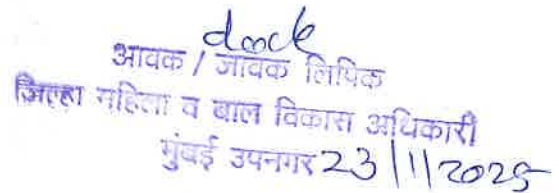 आवक / जावक लिपिक
जिल्हा महिला व बाल विकास अधिकारी
मुंबई उपनगर 23/1/2025